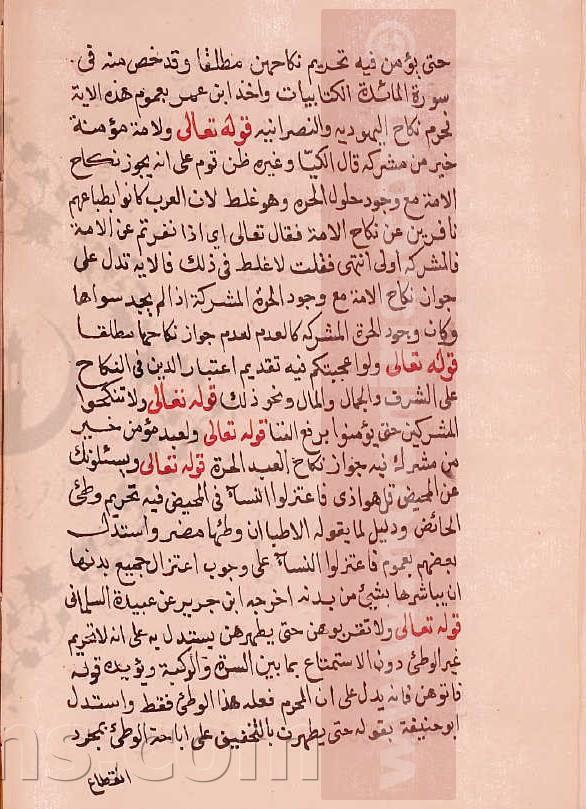 حتى يؤمن فيه تحريم نكاحهن مطلقا وقد خص منه في
سورة المائدة الكتابيات واخذ ابن عمر بعموم هذه الاية
فحرم نكاح اليهودية والنصرانيه قوله تعالى ولامة مؤمنة
خير من مشركه قال الكيا وغيره ظن قوم على انه يجوز نكاح
الامة مع وجود حلول الحره وهو غلط لان العرب كانوا بطباعهم
نافرين عن نكاح الامة فقال تعالى اي اذا نفرتم عن الامة
فالمشركه اولى انتهى فقلت لا غلط في ذلك فالايه تدل على
جواز نكاح الامة مع وجود الحرة المشركة اذا لم يجد سواها
وكان وجود الحرة المشركه كالعدم لعدم جواز نكاحها مطلقا
قوله تعالى ولو اعجبتكم فيه تقديم اعتبار الدين في النكاح
على الشرف والجمال والمال ونحو ذلك قوله تعالى ولا تنكحوا
المشركين حتى يؤمنوا برفع التا قوله تعالى ولعبد مؤمن خير
من مشرك فيه جواز نكاح العبد الحرة قوله تعالى ويسئلونك
عن المحيض قل هو اذى فاعتزلوا النسآ في المحيض فيه تحريم وطئ
الحائض ودليل لما يقوله الاطبا ان وطئها مضر واستدل
بعضهم بعموم فاعتزلوا النسآ على وجوب اعتزال جميع بدنها
ان يباشرها بشيئ من بدنه اخرجه ابن جرير عن عبيدة السلمانى
قوله تعالى ولا تقربوهن حتى يطهرهن يستدل به على انه لا تحريم
غير الوطئ دون الاستمتاع بما بين السرة والركبة ويؤيده قوله
فاتوهن فانه يدل على ان المحرم فعله هذا الوطئ فقط واستدل
ابو حنيفة بقوله حتى يطهرت بالتخفيف على اباحة الوطئ بمجرد
انقطاع
ns.com